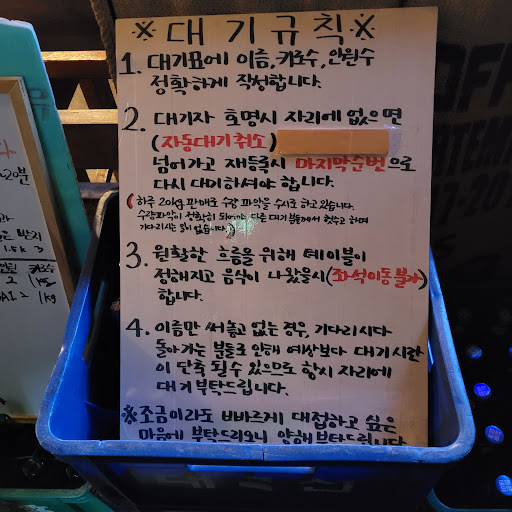 ※대기규칙※
1. 대기표에 이름, 키로수, 인원수
정확하게 작성합니다.
2. 대기자 호명시 자리에 없으면
(자동대기취소)
넘어가고 재등록시 마지막순번으로
다시 대기하셔야 합니다.
(하루 20kg 판매로 수량 파악을 수시로 하고있습니다.
수량파악이 정확히 되어야 다른 대기분들께서 헛수고 하며
기다리시는 일이 없습니다.)
3. 원활한 흐름을 위해 테이블이
정해지고 음식이 나왔을시(좌석이동불가)
합니다.
4. 이름만 써놓고 없는 경우, 기다리시다
돌아가는 분들로 인해 예상보다 대기시간
이 단축 될수 있으므로 항시 자리에
대기부탁드립니다.
※조금이라도 빠르게 대접하고 싶은
마음에 부탁드리오니 양해부탁드립니다.
20분
1.5k
2
1kg